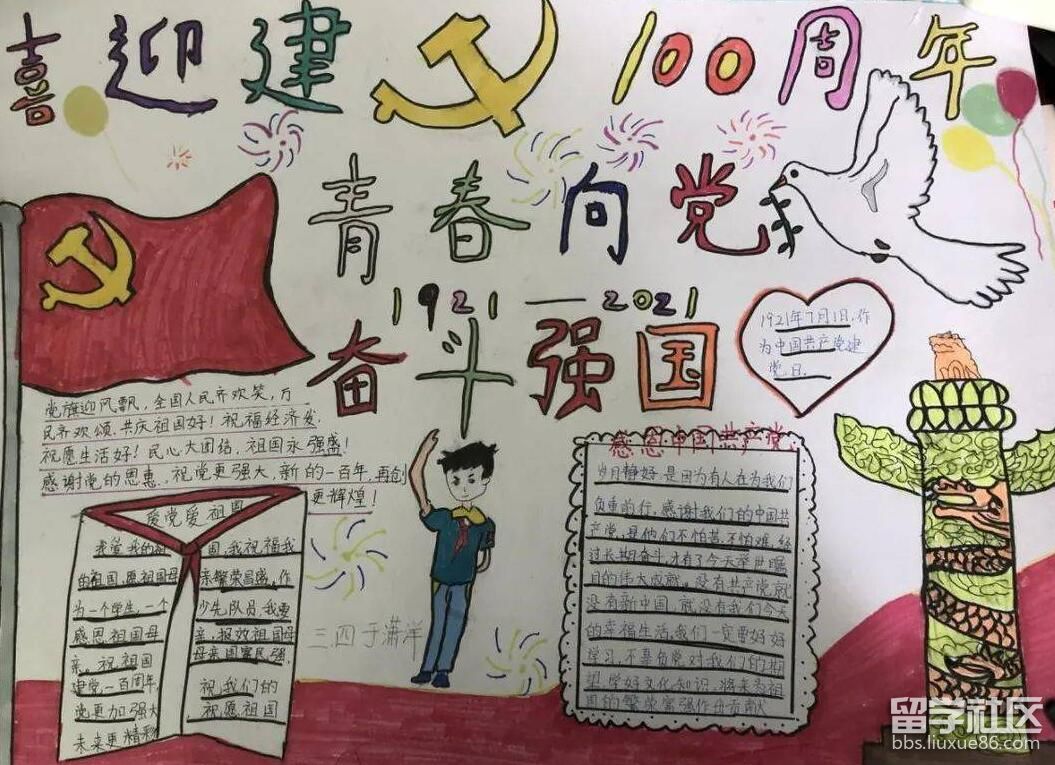 喜迎建 100周年
青春向党
1921—2021
奋斗强国
1921年7月1日,作
为中国共产党建
党日.
党旗迎风飘,全国人民齐欢笑,万
民齐欢颂,共庆祖国好!祝福经济发
祝愿生活好!民心大团结,祖国永强盛!
感谢党的恩惠,祝党更强大,新的一百年,再创
更辉煌!
爱党爱祖国
我爱我的祖国,我祝福我
的祖国,愿祖国母亲繁荣昌盛,作
为一个学生,一个少先队员,我要
感恩祖国母亲,报效祖国母
亲。祝祖国母亲国富民强,
建党一百周年,祝我们的
党更加强大 祝愿祖国
未来更精彩
三.四于潇洋
感恩中国共产党
岁月静好,是因为有人在为我们
负重前行,感谢我们的中国共
产党,是他们不怕苦,不怕难,经
过长期奋斗,才有了今天举世瞩
目的伟大成就。没有共产党就
没有新中国,就没有我们今天
的幸福生活,我们一定要好好
学习,不辜负党对我们的期
望,学好文化知识,将来为祖
国的繁荣富强作出贡献
留学社区
bbs.liuxue86.com